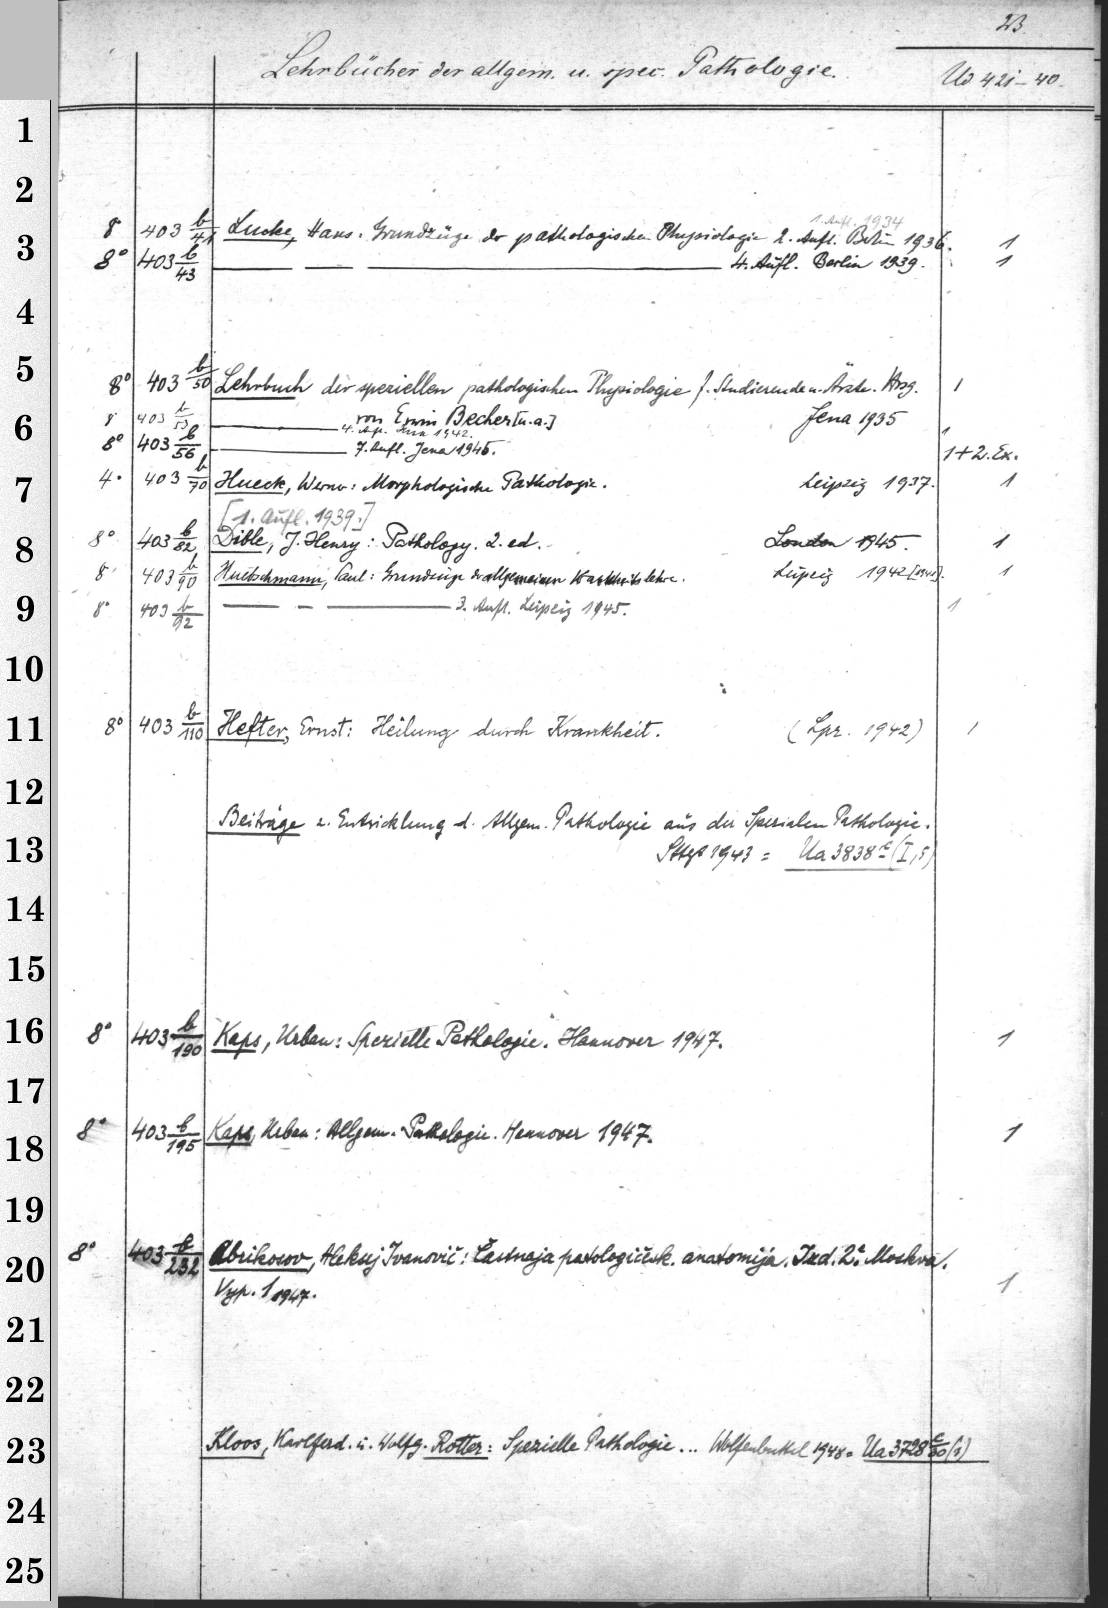 23
Lehrbücher der allgem. u. spec. Pathologie.
1
2
1. Aufl. 1934
8° 403 b/41 Lucke, Hans: Grundzüge der pathologischen Physiologie 2. Aufl. Berlin 1936. 1
3
8° 403 b/43 4. Aufl. Berlin 1939. 1
4
5
8° 403 b/50 Lehrbuch der speziellen pathologischen Physiologie f. Studierende u. Ärzte. Hrsg. 1
6
8° 403 b/53 von Erwin Becher [u.a.] Jena 1935
4. Afl. Jena 1942. 1
8° 403 b/56 7. Aufl. Jena 1945. 1+2. Ex.
7
4° 403 b/70 Hueck, Werner: Morphologische Pathologie. Leipzig 1937. 1
[1. Aufl. 1939.]
8
8° 403 b/82 Dible, J. Henry: Pathology. 2. ed. London 1945. 1
8° 403 b/90 Huebschmann, Paul: Grundzüge der allgemeinen Krankheitslehre. Leipzig 1942 1
9
8° 403 b/92 3. Aufl. Leipzig 1945. 1
10
11
8° 403 b/110 Hefter, Ernst: Heilung durch Krankheit. (Lpz. 1942) 1
12
Beiträge z. Entwicklung d. Allgem. Pathologie aus der Spezialen Pathologie.
13
Sttgt 1943 = Ua 3838 c (I,5)
14
15
16
8° 403 b/190 Kaps, Urban: Spezielle Pathologie. Hannover 1947. 1
17
18
8° 403 b/195 Kaps, Urban: Allgem. Pathologie. Hannover 1947. 1
19
20
8° 403 b/232 Abrikosov, Aleksej Ivanovič: Častnaja patologičesk. anatomija. Izd. 2e. Moskva.
Vyp. 1 1947. 1
21
22
23
Kloos, Karlferd. u. Wolfg. Rotter: Spezielle Pathologie... Wolfenbüttel 1948 = Ua 3728 c/80 (1)
24
25